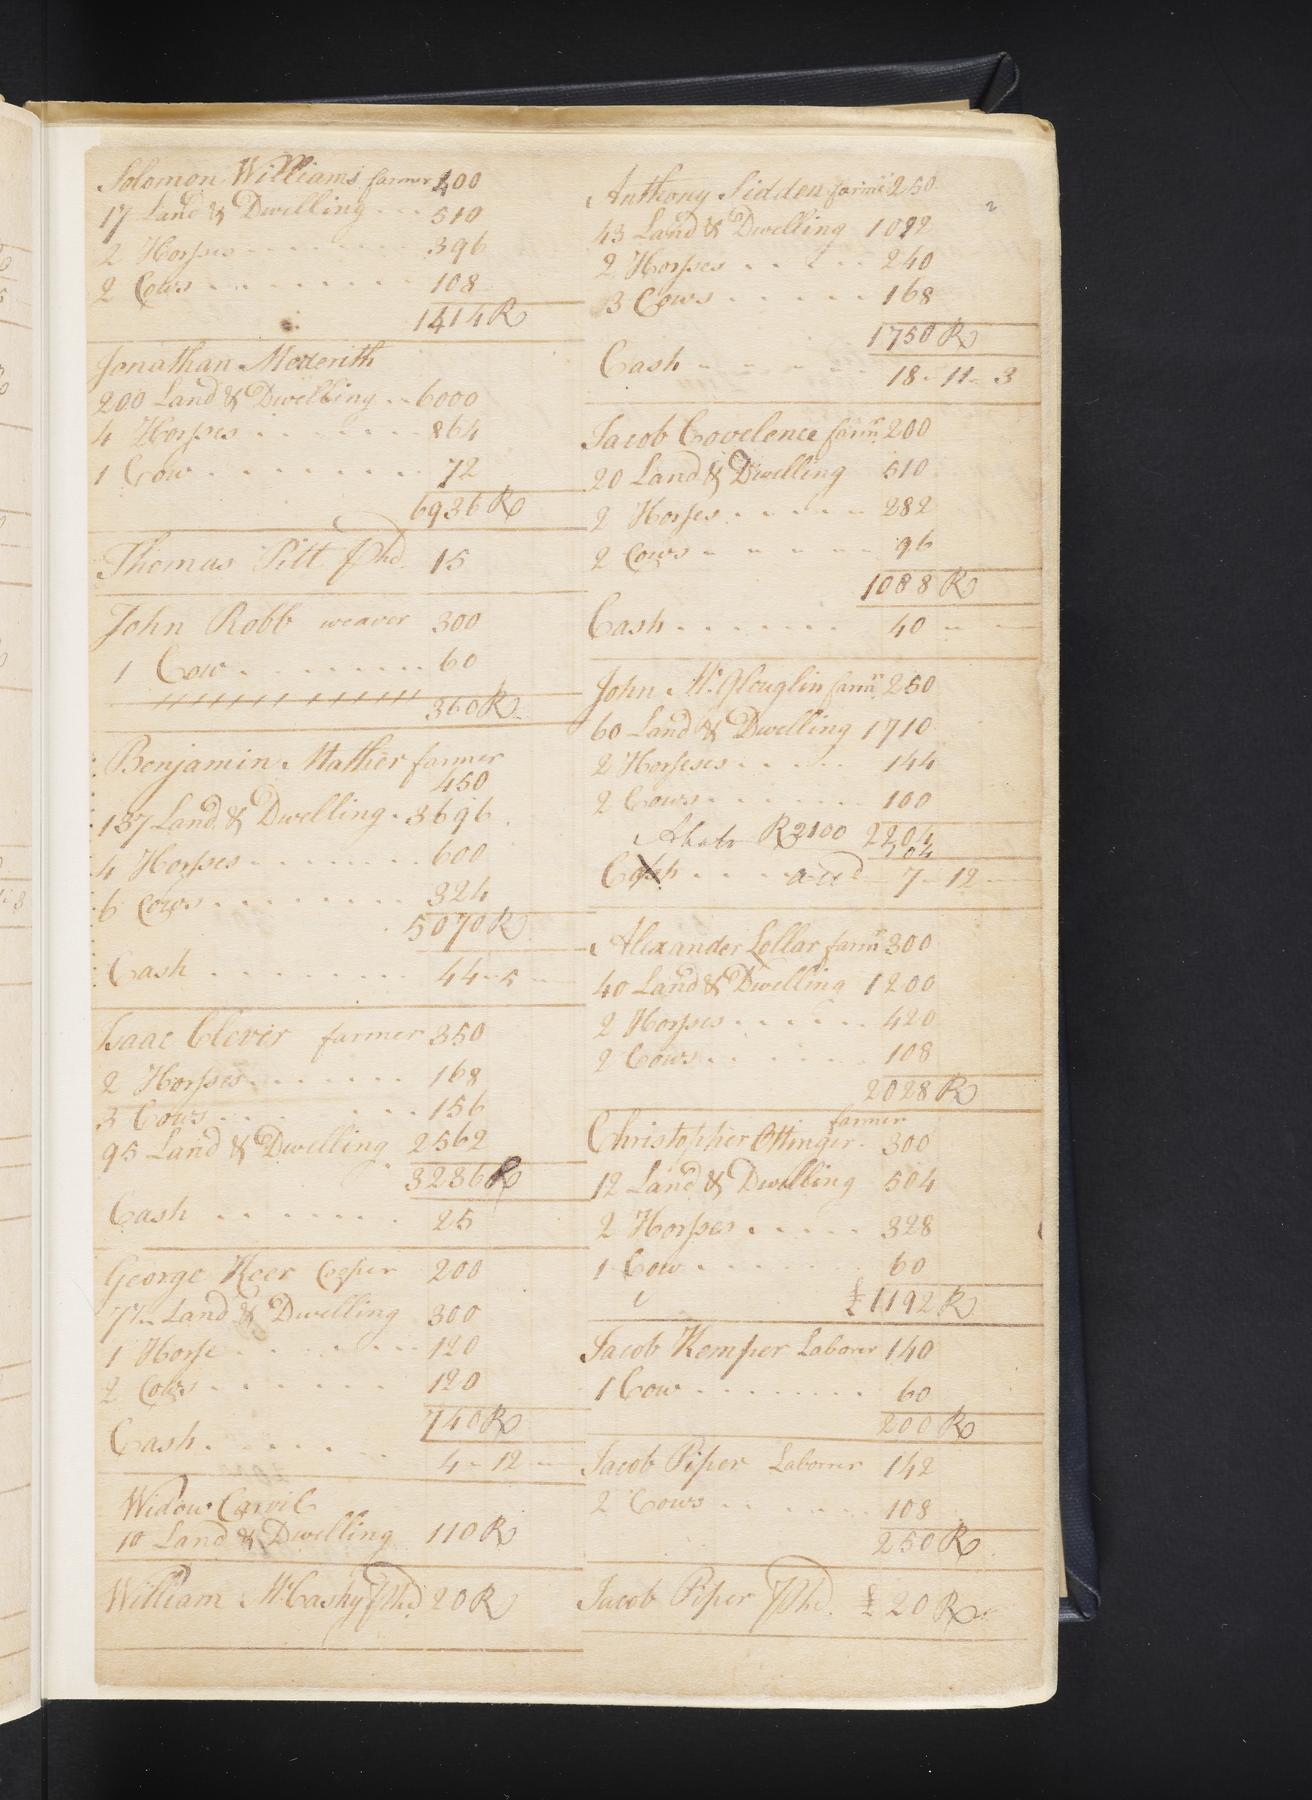 Solomon Williams farmer 400
17 Land & Dwelling 510
2 Horses 396
2 Cows 108
1414 R
Jonathan Mederith
200 Land & Dwelling 6000
4 Horses 864
1 Cow 72
6936 R
Thomas Pitt 15
John Robb weaver 300
1 Cow 60
360 R
Benjamin Mather farmer
450
137 Land & Dwelling 3696
4 Horses 600
6 Cows 324
5070 R
Cash 44-5-
Isaac Clever farmer 350
2 Horses 168
3 Cows 156
95 Land & Dwelling 2562
3236 R
Cash 25
George Keer Cooper 200
Land & Dwelling 300
1 Horse 120
2 Cows 120
740 R
Cash 4-12-
Widow Carvil
10 Land & Dwelling 110 R
William McCashy 20 R
2
Anthony Sidden farmr 250
43 Land & Dwelling 1092
2 Horses 240
3 Cows 168
1750 R
Cash 18-11-3
Jacob Covelence farmr 200
20 Land & Dwelling 510
2 Horses 282
2 Cows 96
1088 R
Cash 40 - -
John McGlouglin farmr 250
60 Land & Dwelling 1710
2 Horseses 144
2 Cows 100
Abate R 2100 2204
104
Cash 7-12-
Alexander Lollar farmr 300
40 Land & Dwelling 1200
2 Horses 420
2 Cows 108
2028 R
farmer
Christopher Ottinger 300
12 Land & Dwelling 504
2 Horses 328
1 Cow 60
£1192 R
Jacob Kemper Laborer 140
1 Cow 60
200 R
Jacob Piper Laborer 142
2 Cows 108
250 R
Jacob Piper £20 R